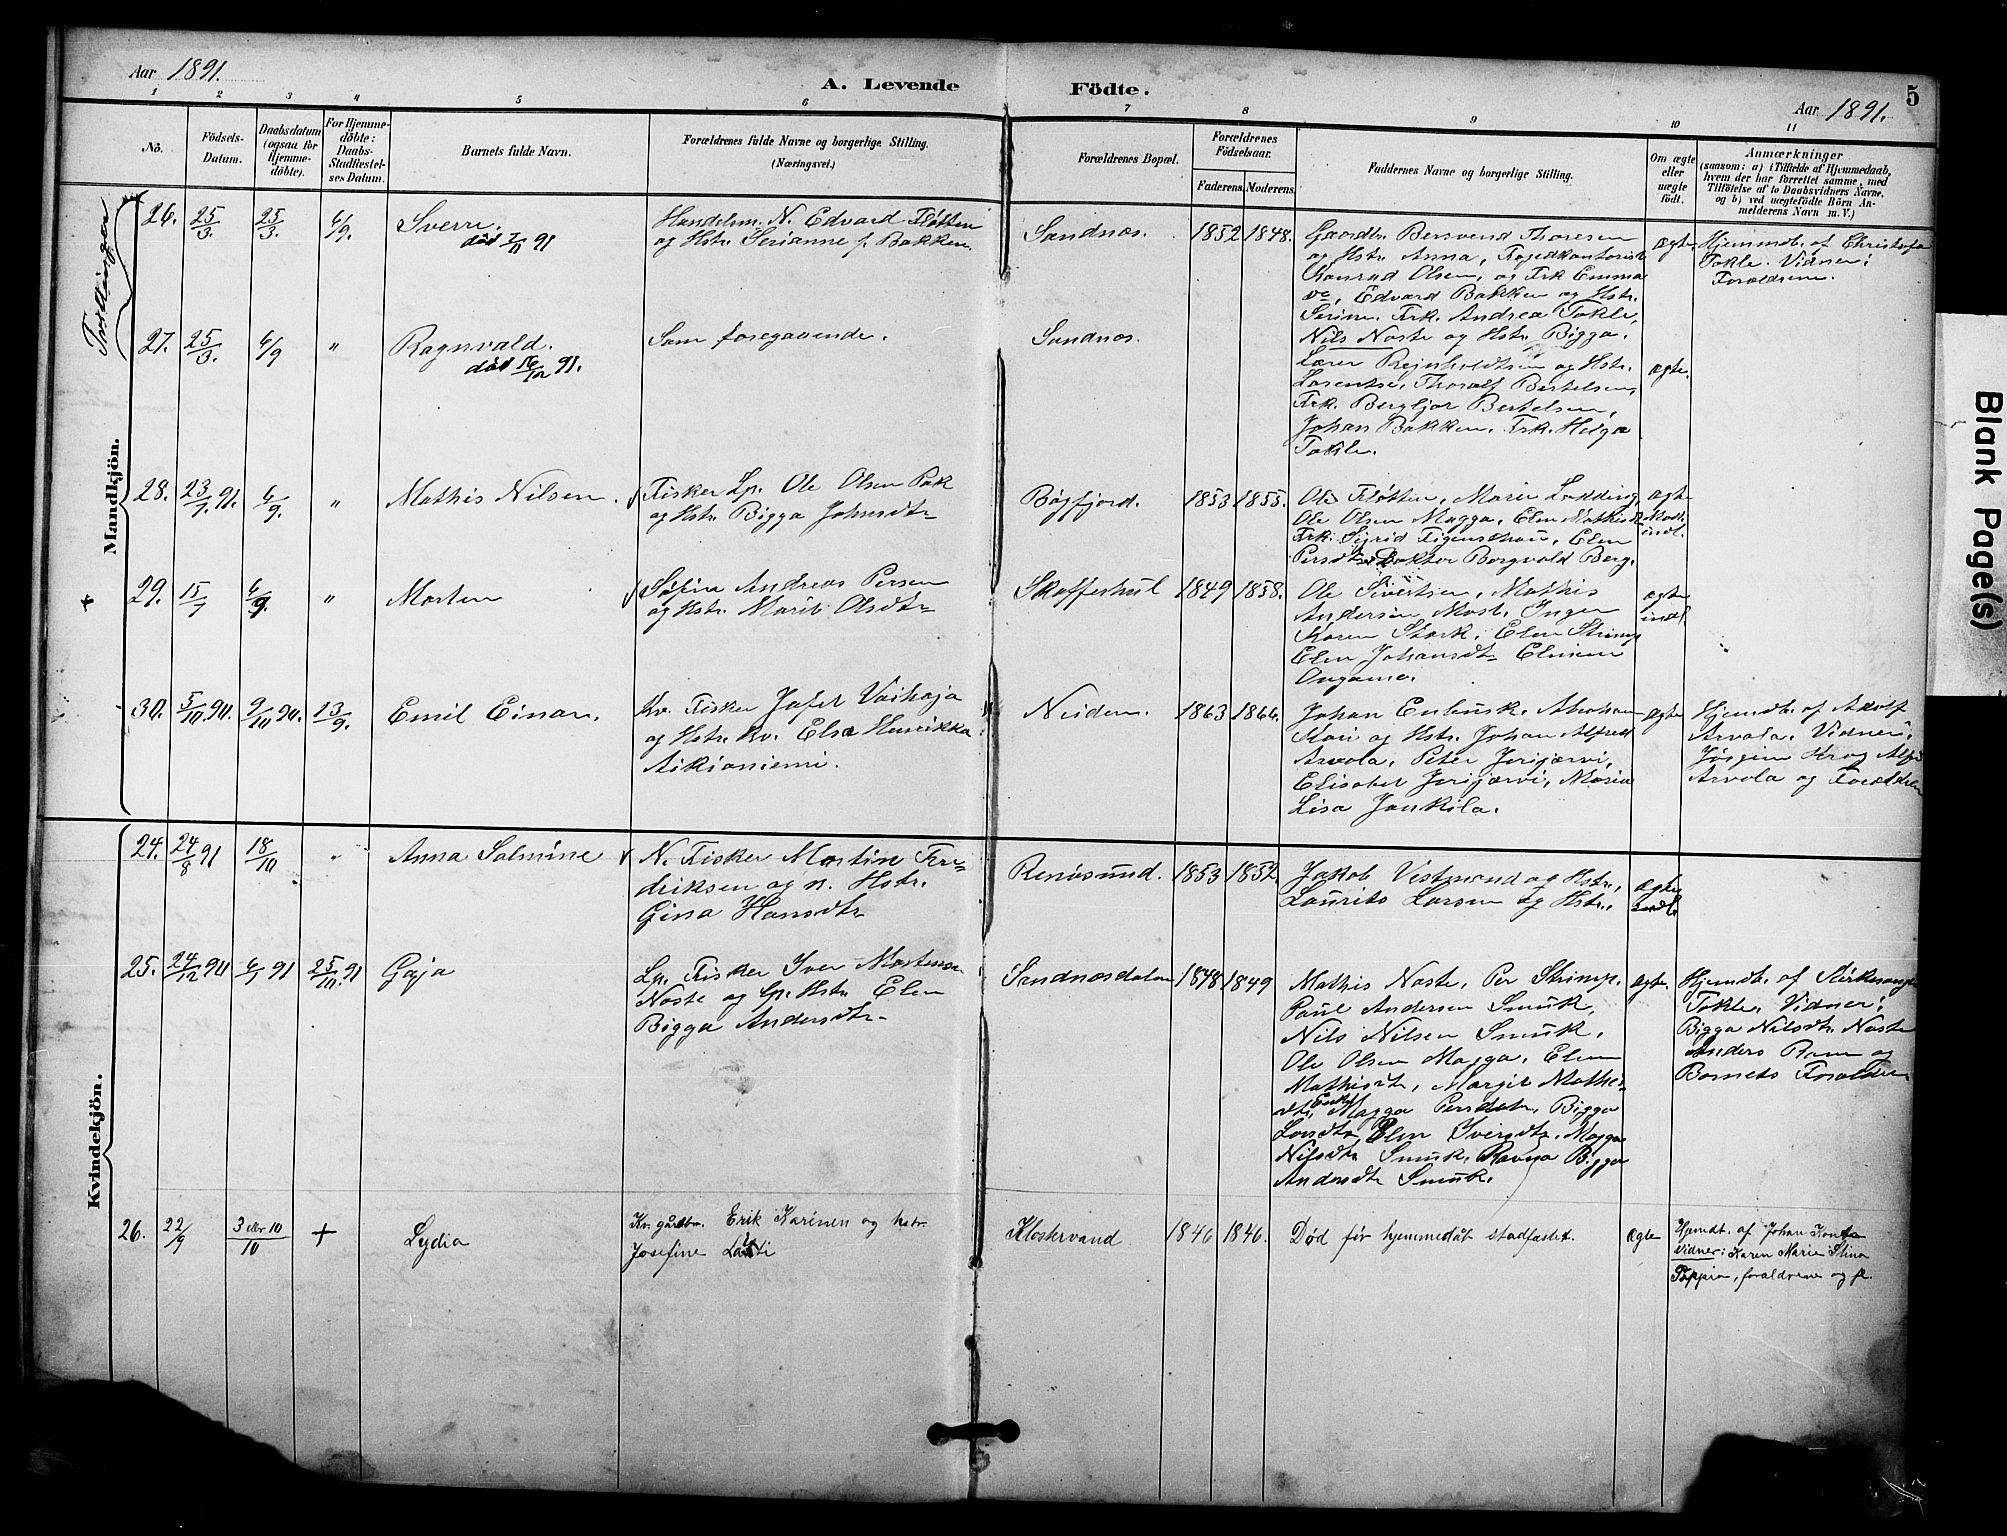 Aar 1891.
A. Levende Födte.
Aar 1891.
5
1 2 3 4 5 6 7 8 9 10 11
No.
Födsels-
Datum.
Daabsdatum
(ogsaa for
Hjemme-
döbte).
For Hjemme-
döbte:
Daabs-
Stadfæstel-
ses Datum.
Barnets fulde Navn.
Forældrenes fulde Navne og borgerlige Stilling.
(Næringsvei.)
Forældrenes Bopæl.
Forældrenes
Födselsaar.
Faderens. Moderens.
Faddernes Navne og borgerlige Stilling.
Om ægte
eller
uægte
født.
Anmærkninger
(saasom: a) i Tilfælde af Hjemmedaab,
hvem der har forrettet samme, med
Tilföielse af to Daabsvidners Navne.
og b) ved uægtefödte Börn An-
melderens Navn m. V.)
Mandkjön.
Tvillinger
26. 25/3. 25/3. 6/9. Sverre.
død 91
Handelsm. N. Edvard Fløtten
og Hstr. Serianne f. Bakken.
Sandnæs. 1852 1848.
Gaardbr. Bersvend Thoresen
og Hstr. Anna, Fogedkontorist
Konrad Olsen, og Frk Emma
do, Edvard Bakken og Hstr.
Serine. Frk. Andrea Tokle,
Nils Noste og Hstr. Bigga.
Lærer Rejnholdtsen og Hstr.
Lorentse, Thoralf Bertelsen,
Frk. Bergljot Bertelsen,
Johan Bakken. Frk. Helga
Tokle.
ægte.
Hjemmdb. af Christofa
Tokle. Vidner:
Forældrene.
27. 25/3. 6/9 " Ragnvald.
død 16/12 91.
Som foregaaende.
Sandnæs.
ægte.
28. 23/7. 91. 6/9. " Mathis Nilsen.
Fisker Lp. Ole Olsen
og Hstr. Bigga Johnsdtr
Bøgfjord. 1853 1855.
Ole Fløtten, Marie
Ole Olsen Magga, Elen Mathisdtr
Frk. Sigrid Figenschou, Elen
Persdtr Doktor Bergvald Berg.
ægte
indt.
+ 29. 15/7 6/9. " Morten
Andreas Persen
og Hstr. Marit Olsdtr
Skafferhul 1849 1858.
Ole Sivertsen, Mathis
Andersen Inger
Karen Stork, Elen Strimp
Elen Johansdtr
ægte
indt.
30. 5/10. 90. 9/10 90. 13/9. Emil Einar.
Kv. Fisker Jafet Vaihoja
og Hstr. kv. Elsa Henrikka
Aikioniemi.
Neiden. 1863 1866.
Johan Enbusk. Abraham
og Hstr. Johan Alfred
Arvola, Peter Jerijærvi,
Elisabet Jerijærvi, Maria
Lisa Jankila.
ægte
Hjemdb. af Adolf
Arvola. Vidner:
Jørgine Krog Alf
Arvola og Forældrene
Kvindekjön.
24. 24/8 91 18/10 " Anna Salmine
N. Fisker Martin Fre-
driksen og n. Hstr.
Gina Hansdtr
Renøsund. 1853 1852.
Jakob Vestmand og Hstr.
Laurits Larsen og Hstr.
ægte
25. 24/12 90 6/1 91 25/10. 91 Gaja
Lp. Fisker Iver Mortensen
Noste og lp. Hstr. Elen
Bigga Andersdtr
Sandnæsdalen 1848 1849
Mathis Noste, Per Strimp.
Paul Andersen Smuk,
Nils Nilsen Smuk,
Ole Olsen Magga, Elen
Mathisdtr, Margit Mathis-
dtr, Magga Persdatr, Bigga
Elen Iversdtr, Magga
Nilsdtr Smuk, Ravna Bigga
Andersdtr Smuk.
ægte.
Hjemdt. af Kirkesanger
Tokle, Vidner:
Bigga Nilsdtr. Noste
Anders og
Barnets Forældre
26. 22/9 3 eller 10/10 + Lydia
Kv. gårdbr. Erik Karinen og hstr.
Josefine
Klostervand 1846 1846.
Død før hjemmedåb stadfæstet.
ægte
Hjemdt. af Johan
Vidner: Karen Marie Stina
forældrene og fl.
Blank Page(s)